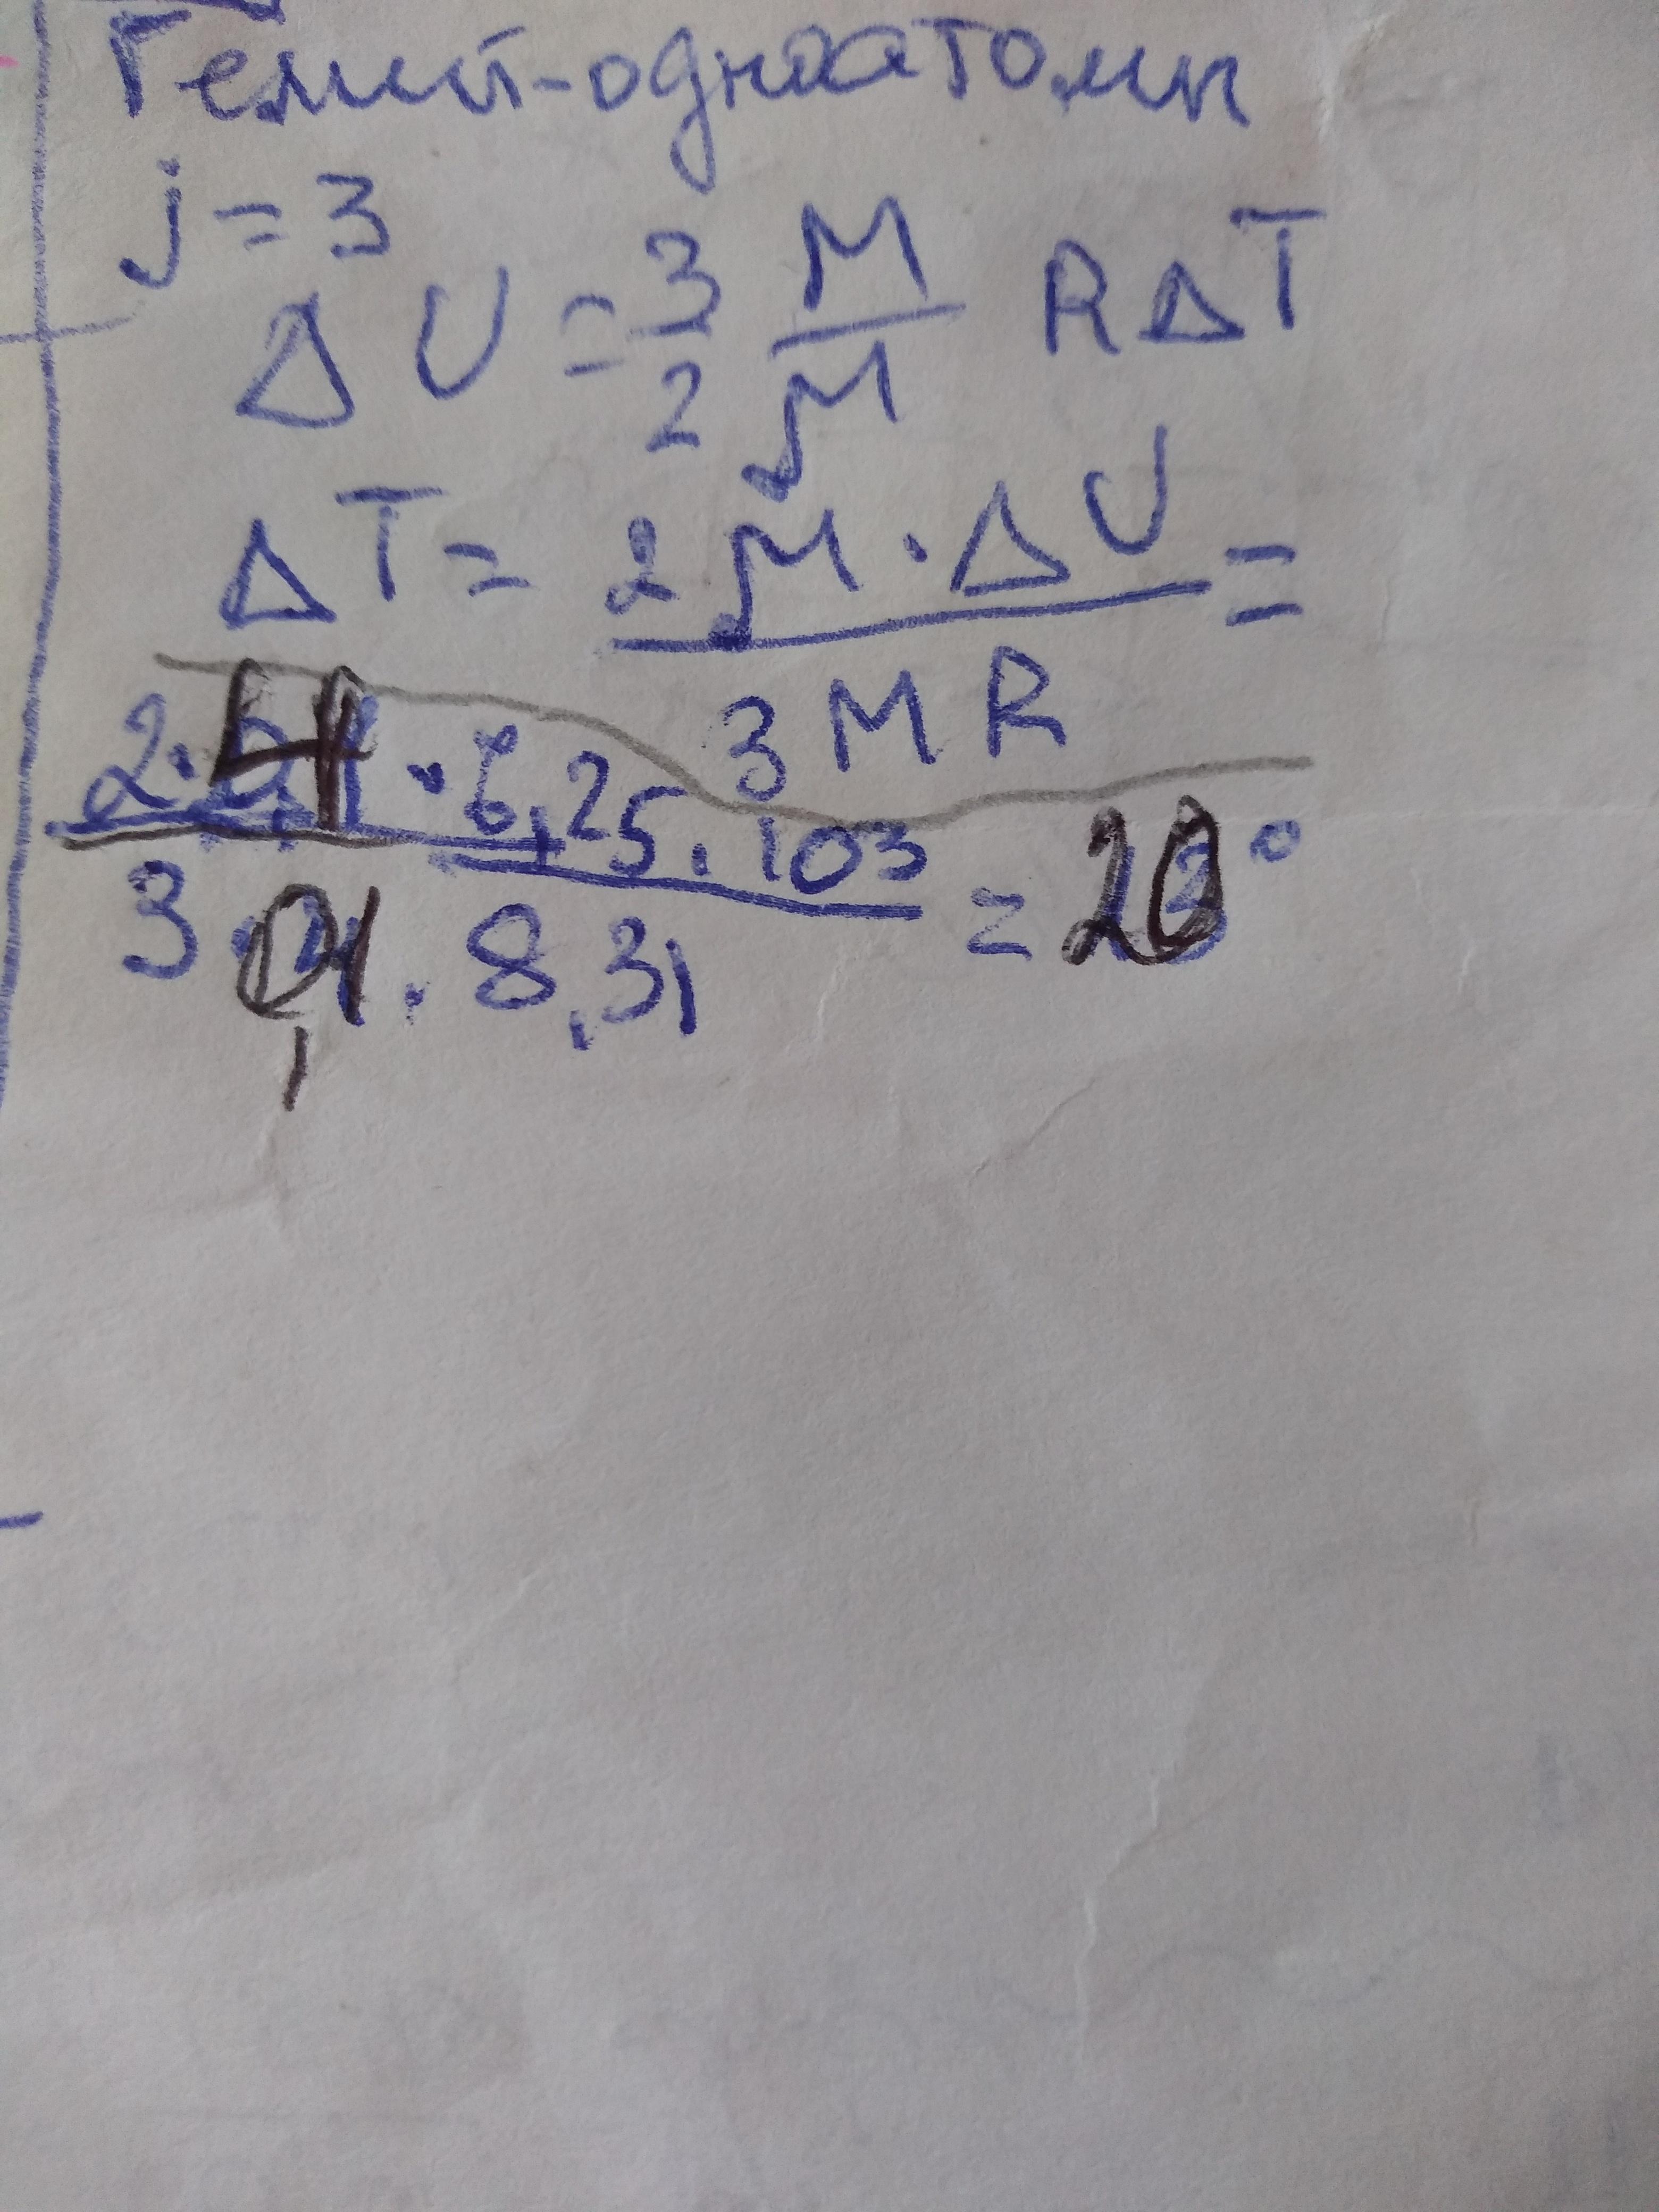 Гелий-одноатомн
j = 3
Δ U = 3/2 M/μ R Δ T
Δ T = 2 μ · Δ U / 3 M R =
2 · 4 · 6,25 · 10³ / 3 · 0,1 · 8,31 = 20°